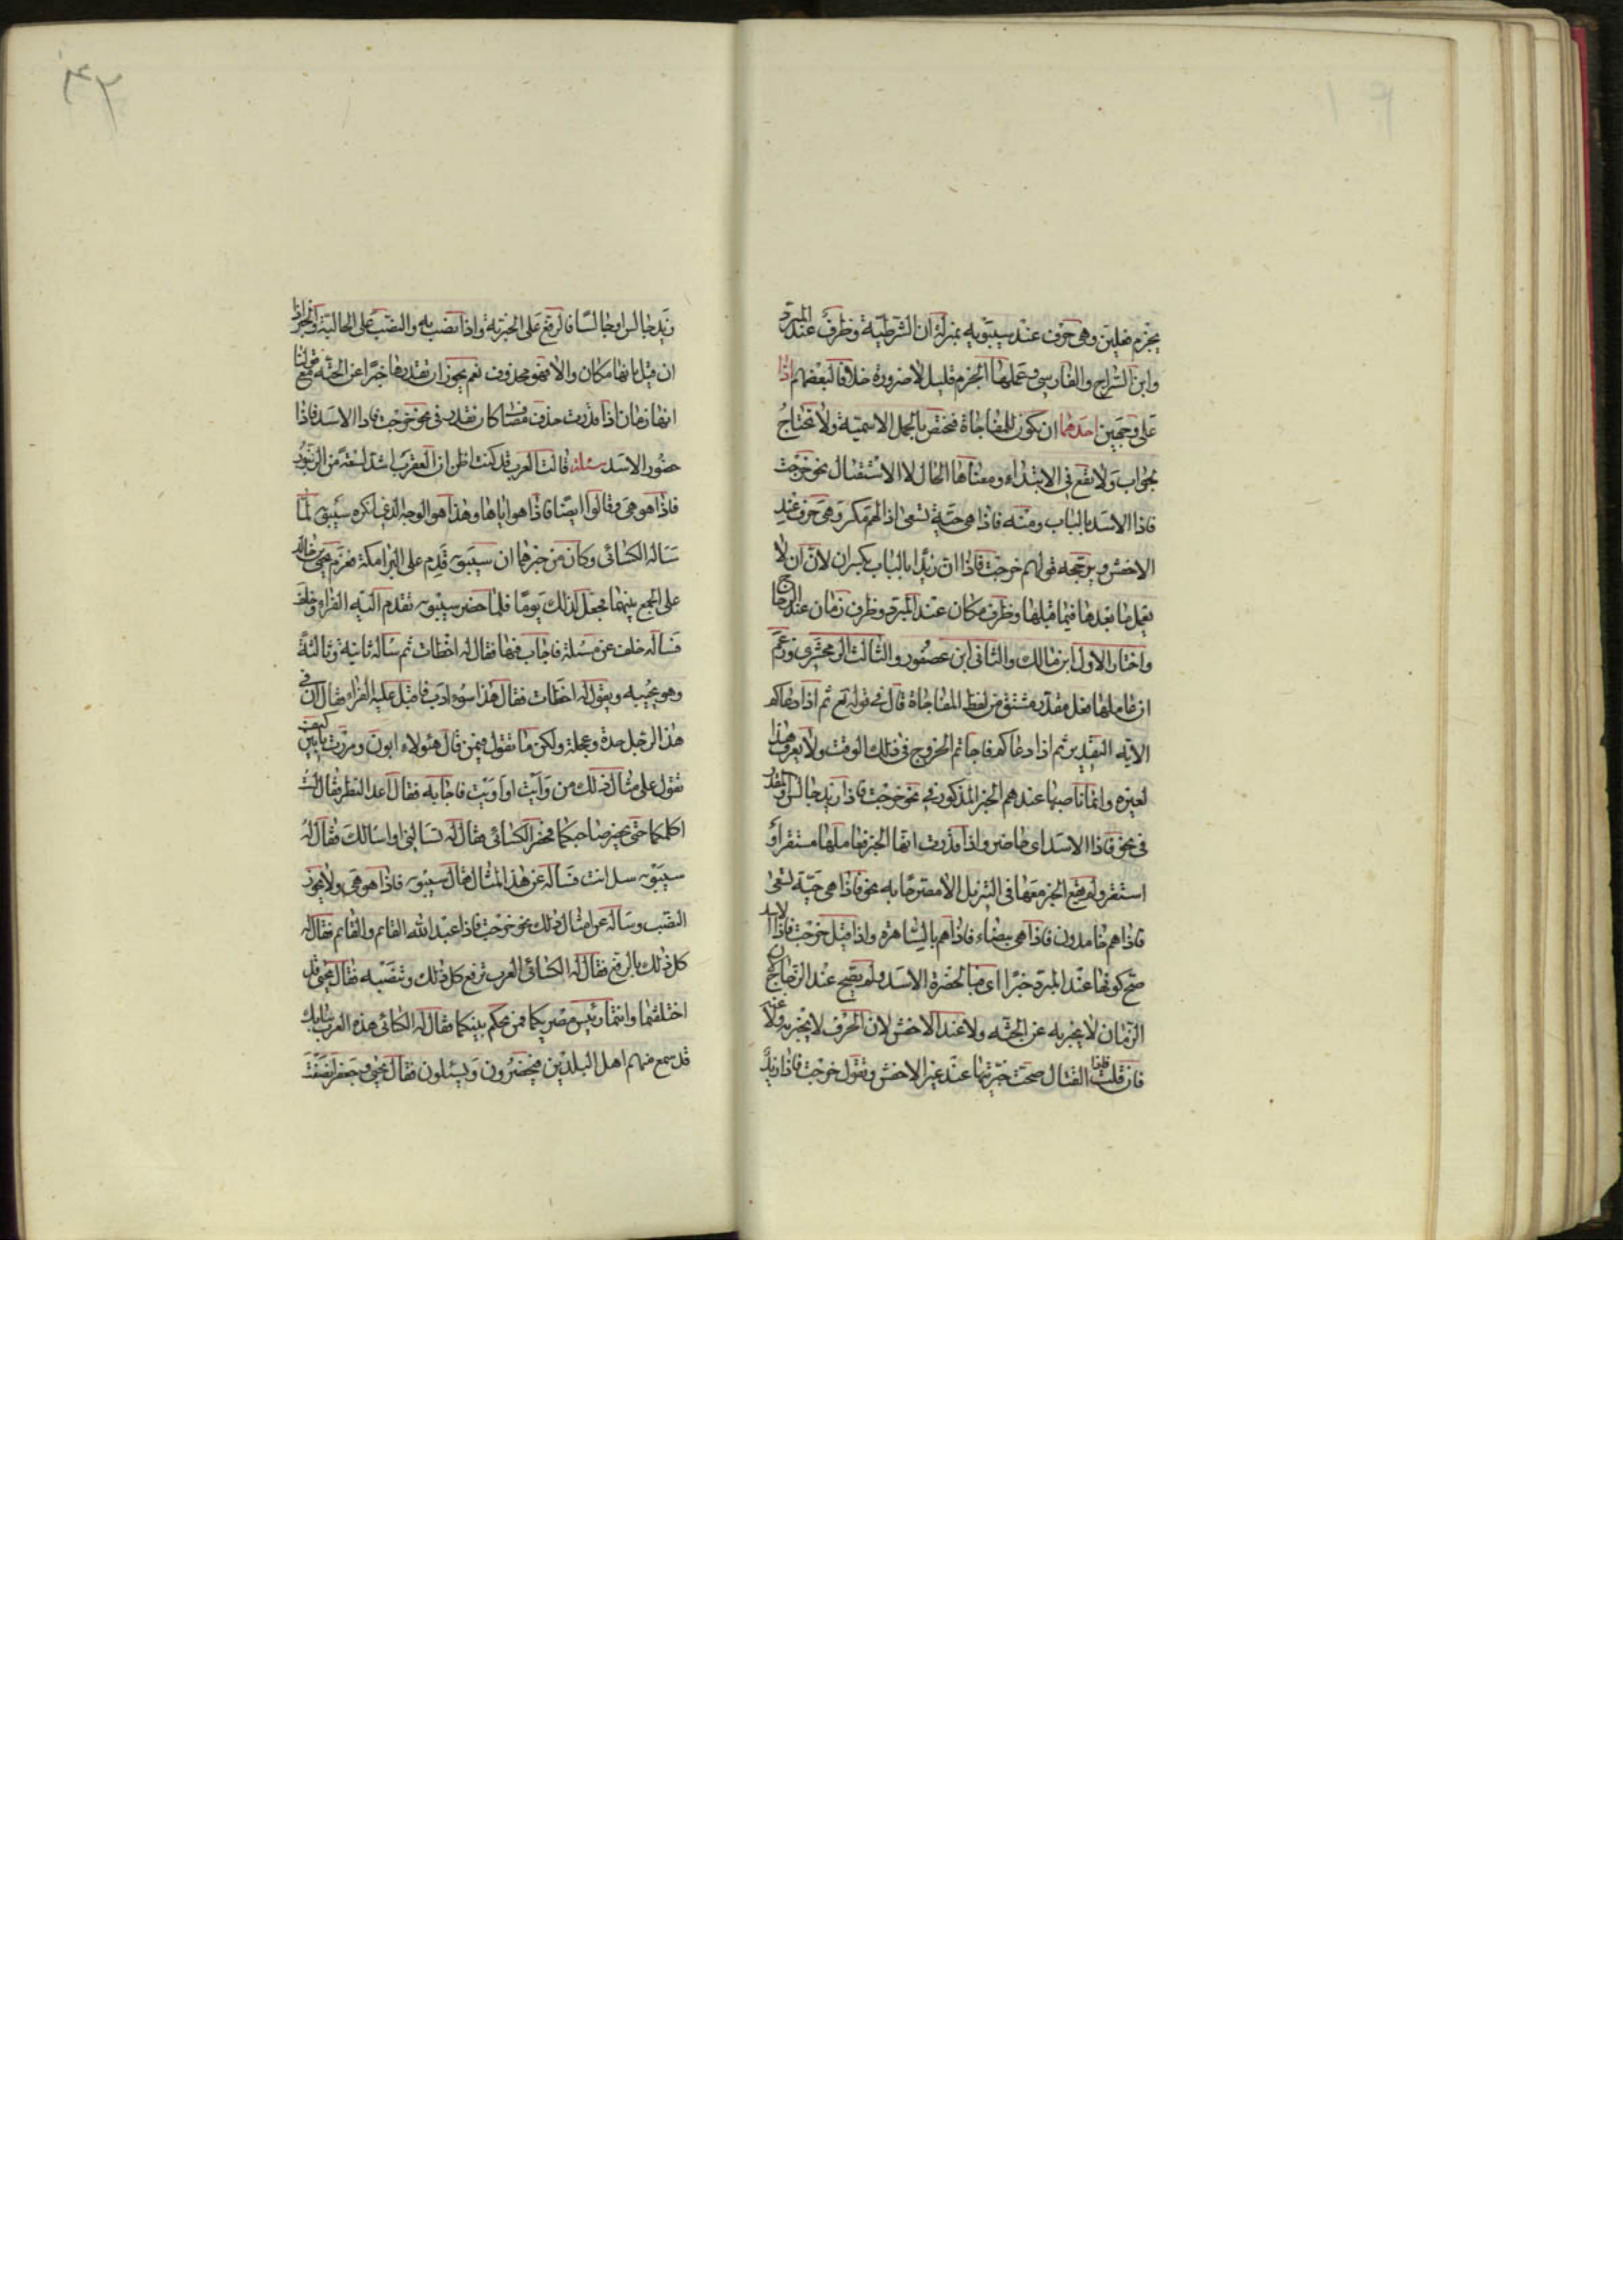 يجزم فعلين وهى حرف عند سيبويه بمنزلة ان الشرطية وظرف عند المبرد
وابن السراج والفارسى وعملها الجزم قليل لا ضرورة خلافا لبعضهم اذا
على وجهين احدهما ان يكون للمفاجاة فيختص بالجمل الاسمية ولا يحتاج
بجواب ولا يقع فى الابتداء ومعناها الحال لا الاستقبال نحو خرجت
فاذا الاسد بالباب ومنه فاذا هى حية تسعى اذا لهم مكر وهى حرف عند
الاخفش ويرجحه قولهم خرجت فاذا ان زيدا بالباب بكسر ان لان ان لا
يعمل ما بعدها فيما قبلها وظرف مكان عند المبرد وظرف زمان عند الزجاج
واختار الاول ابن مالك والثانى ابن عصفور والثالث الزمخشرى وزعم
ان عاملها فعل مقدر مشتق من لفظ المفاجاة قال فى قوله تع ثم اذا دعاكم
الاية التقدير ثم اذا دعاكم فاجاتم الخروج فى ذلك الوقت ولا يعرف هذا
لغيره وانما ناصبها عندهم الخبر المذكور فى نحو خرجت فاذا زيد جالس والمقدر
فى نحو فاذا الاسد اى حاضر واذا قدرت انها الخبر فعاملها مستقر او
استقر ولم يقع الخبر معها فى التنزيل الا مصرحا به نحو فاذا هى حية تسعى
فاذا هم خامدون فاذا هى بيضاء فاذا هم بالساهرة واذا قيل خرجت فاذا الاسد
صح كونها عند المبرد خبرا اى فبالحضرة الاسد ولم يصح عند الزجاج لان
الزمان لا يخبر به عن الجثة ولا عند الاخفش لان الحرف لا يخبر به ولا عنه
فان قلت فاذا القتال صحت خبريتها عند غير الاخفش وتقول خرجت فاذا زيد
زيد جالس او جالسا فالرفع على الخبرية واذا نصب به والنصب على الحالية والخبر اذا
ان قيل بانها مكان والا فهو محذوف نعم يجوز ان تقدرها خبرا عن الجثة مع قولنا
انها زمان اذا قدرت حذف مضاف كان تقدر فى نحو خرجت فاذا الاسد فاذا
حضور الاسد مسئلة قالت العرب قد كنت اظن ان العقرب اشد لسعة من الزنبور
فاذا هو هى وقالوا ايضا فاذا هو اياها وهذا هو الوجه الذى انكره سيبويه لما
ساله الكسائى وكان من خبرهما ان سيبويه قدم على البرامكة فعزم يحيى بن خالد
على الجمع بينهما فجعل لذلك يوما فلما حضر سيبويه تقدم اليه الفراء وخلف
فساله خلف عن مسئلة فاجاب فيها فقال له اخطات ثم ساله ثانية وثالثة
وهو يجيبه ويقول له اخطات فقال هذا سوء ادب فاقبل عليه الفراء فقال ان فى
هذا الرجل حدة وعجلة ولكن ما تقول فيمن قال هئولاء ابون ومررت بابين كيف
تقول على مثال ذلك من وايت او اويت فاجابه فقال اعد النظر فقال لست
اكلمكما حتى يحضر صاحبكما فحضر الكسائى فقال له تسالنى او اسالك فقال له
سيبويه سل انت فساله عن هذا المثال فقال سيبويه فاذا هو هى ولا يجوز
النصب وساله عن امثال ذلك نحو خرجت فاذا عبد الله القائم والقائم فقال له
كل ذلك بالرفع فقال له الكسائى العرب ترفع كل ذلك وتنصبه فقال يحيى قد
اختلفتما وانتما رئيس مصريكما فمن يحكم بينكما فقال له الكسائى هذه العرب ببابك
قد سمع منهم اهل البلدين فيحضرون ويسئلون فقال يحيى وجعفر انصفت